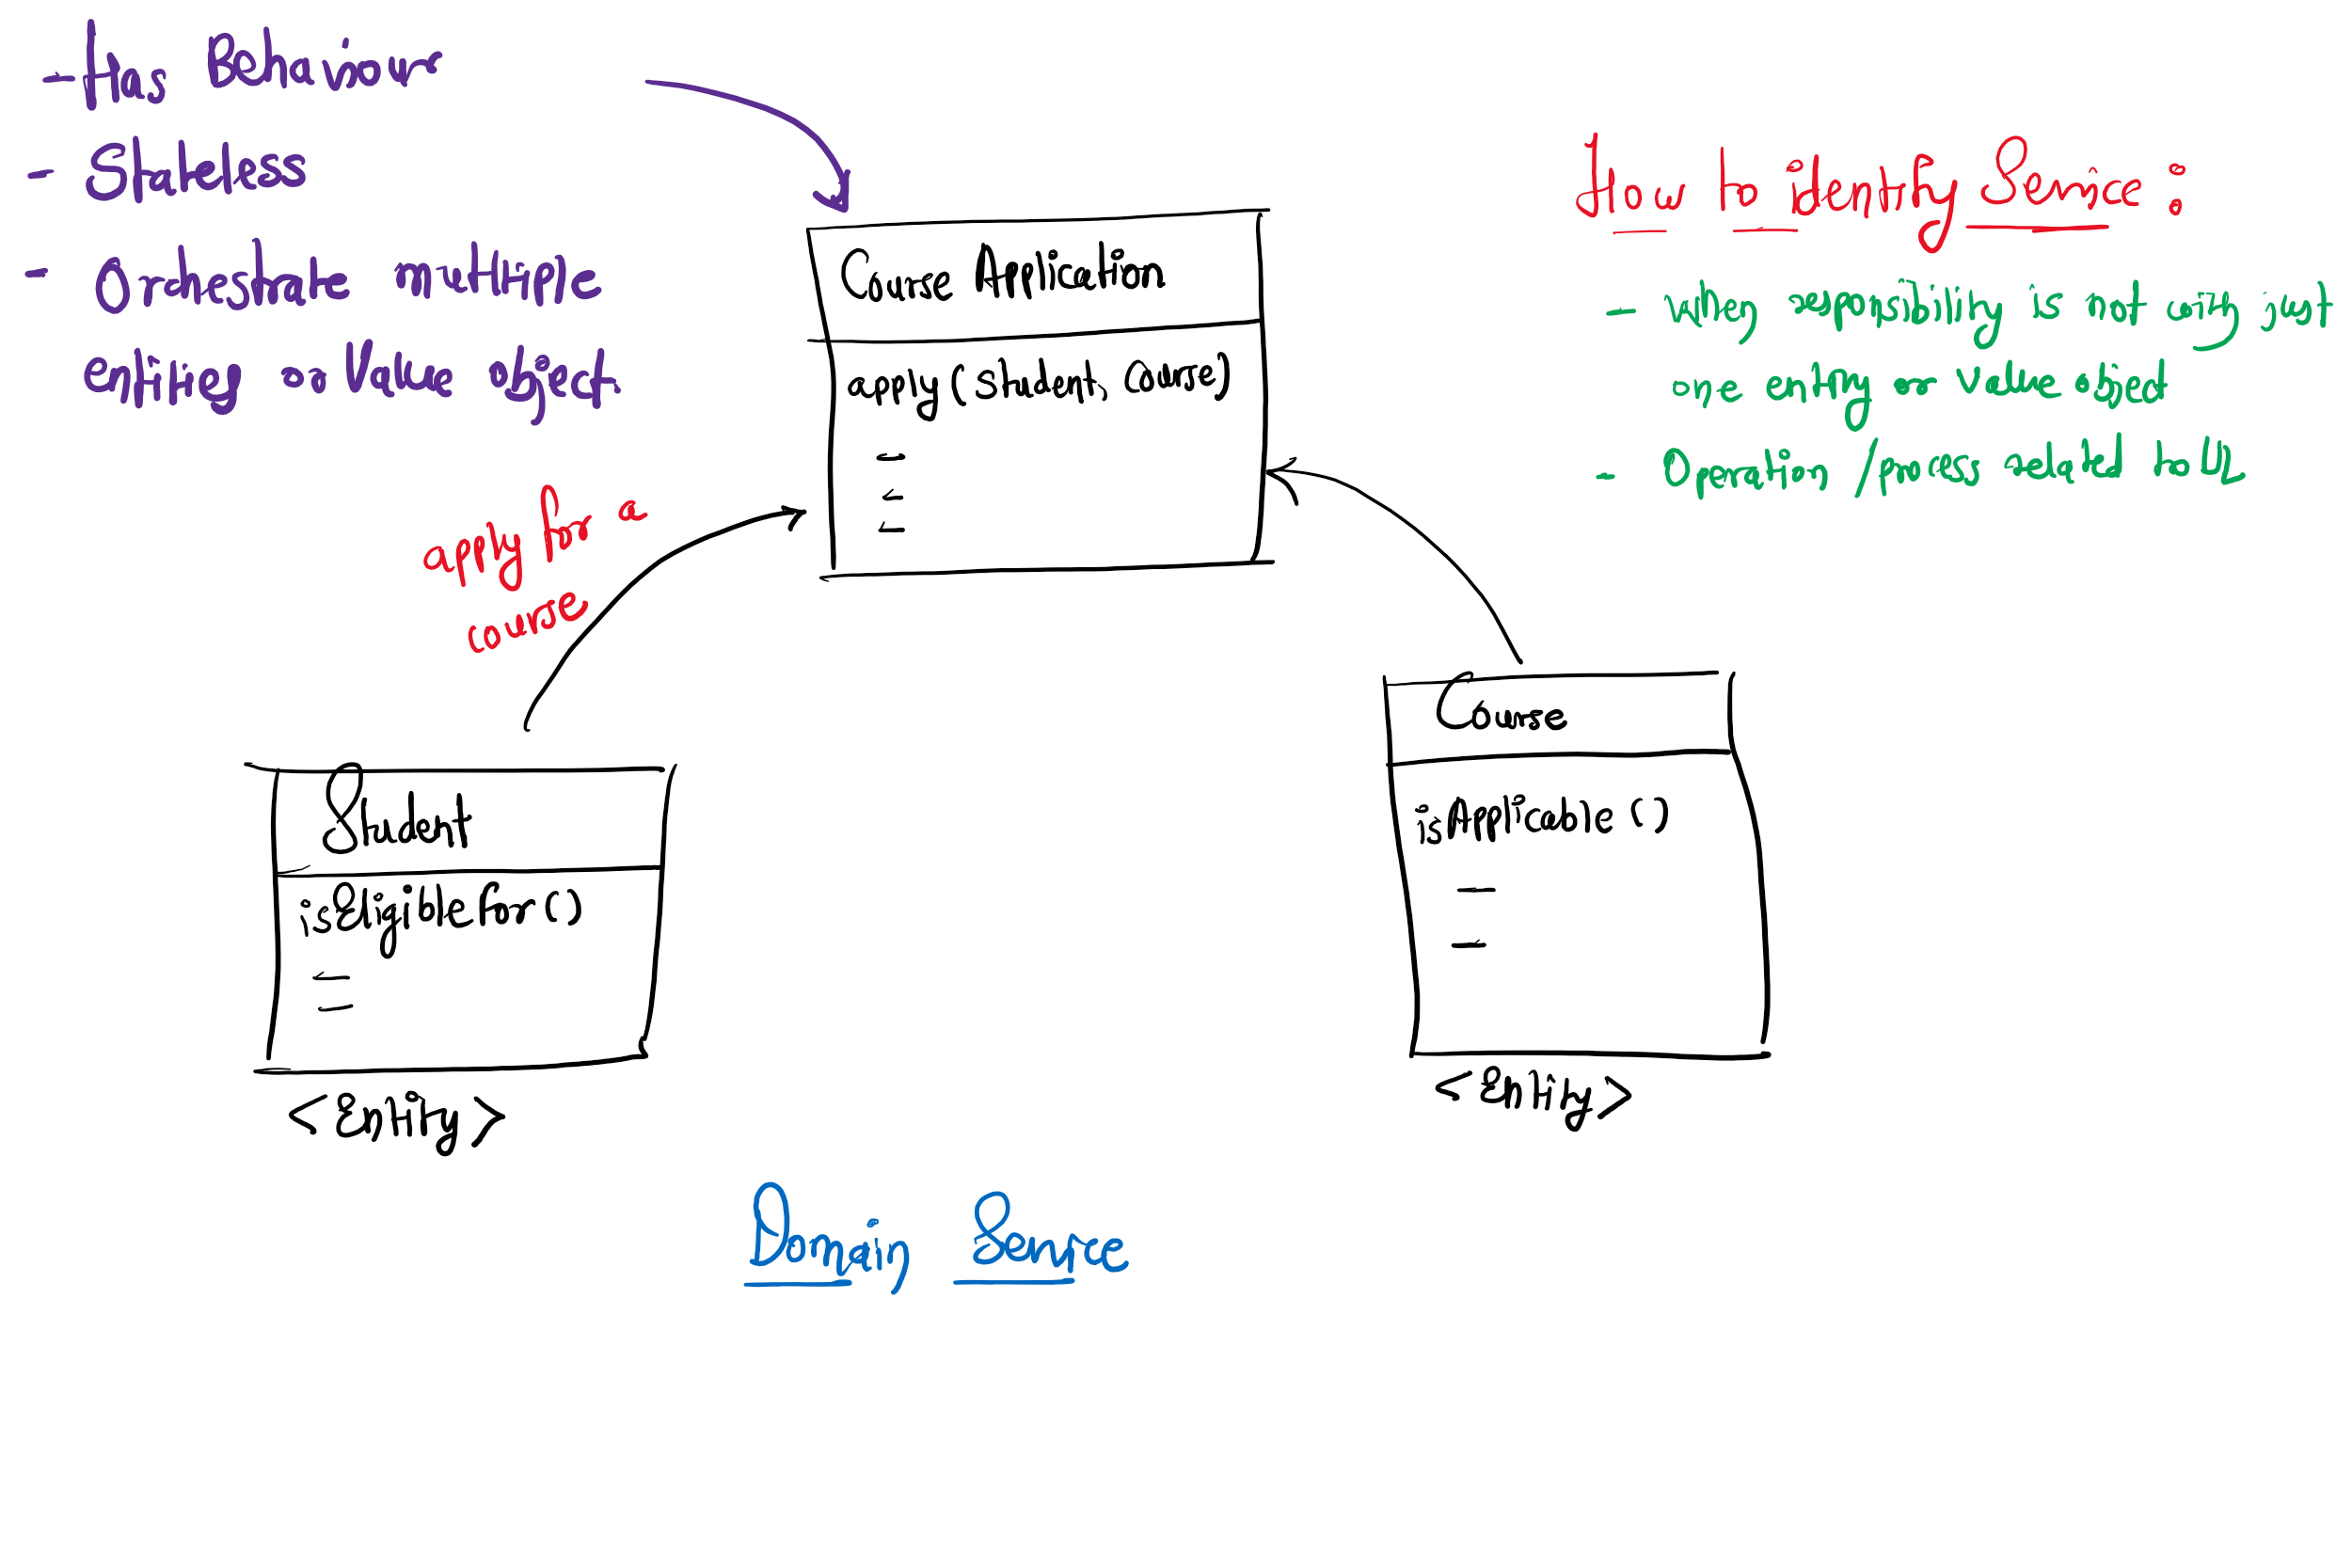 - Has Behaviour
- Stateless
- Orchestrate multiple
entity or Value object.
Course Application
apply (student, Course)
How to identify Service :
- When responsibility is not with just
one entity or value object
- Operation / process related to UL
apply for a
course
Student
isEligible for ()
<Entity>
Course
isApplicable ()
<Entity>
Domain Service